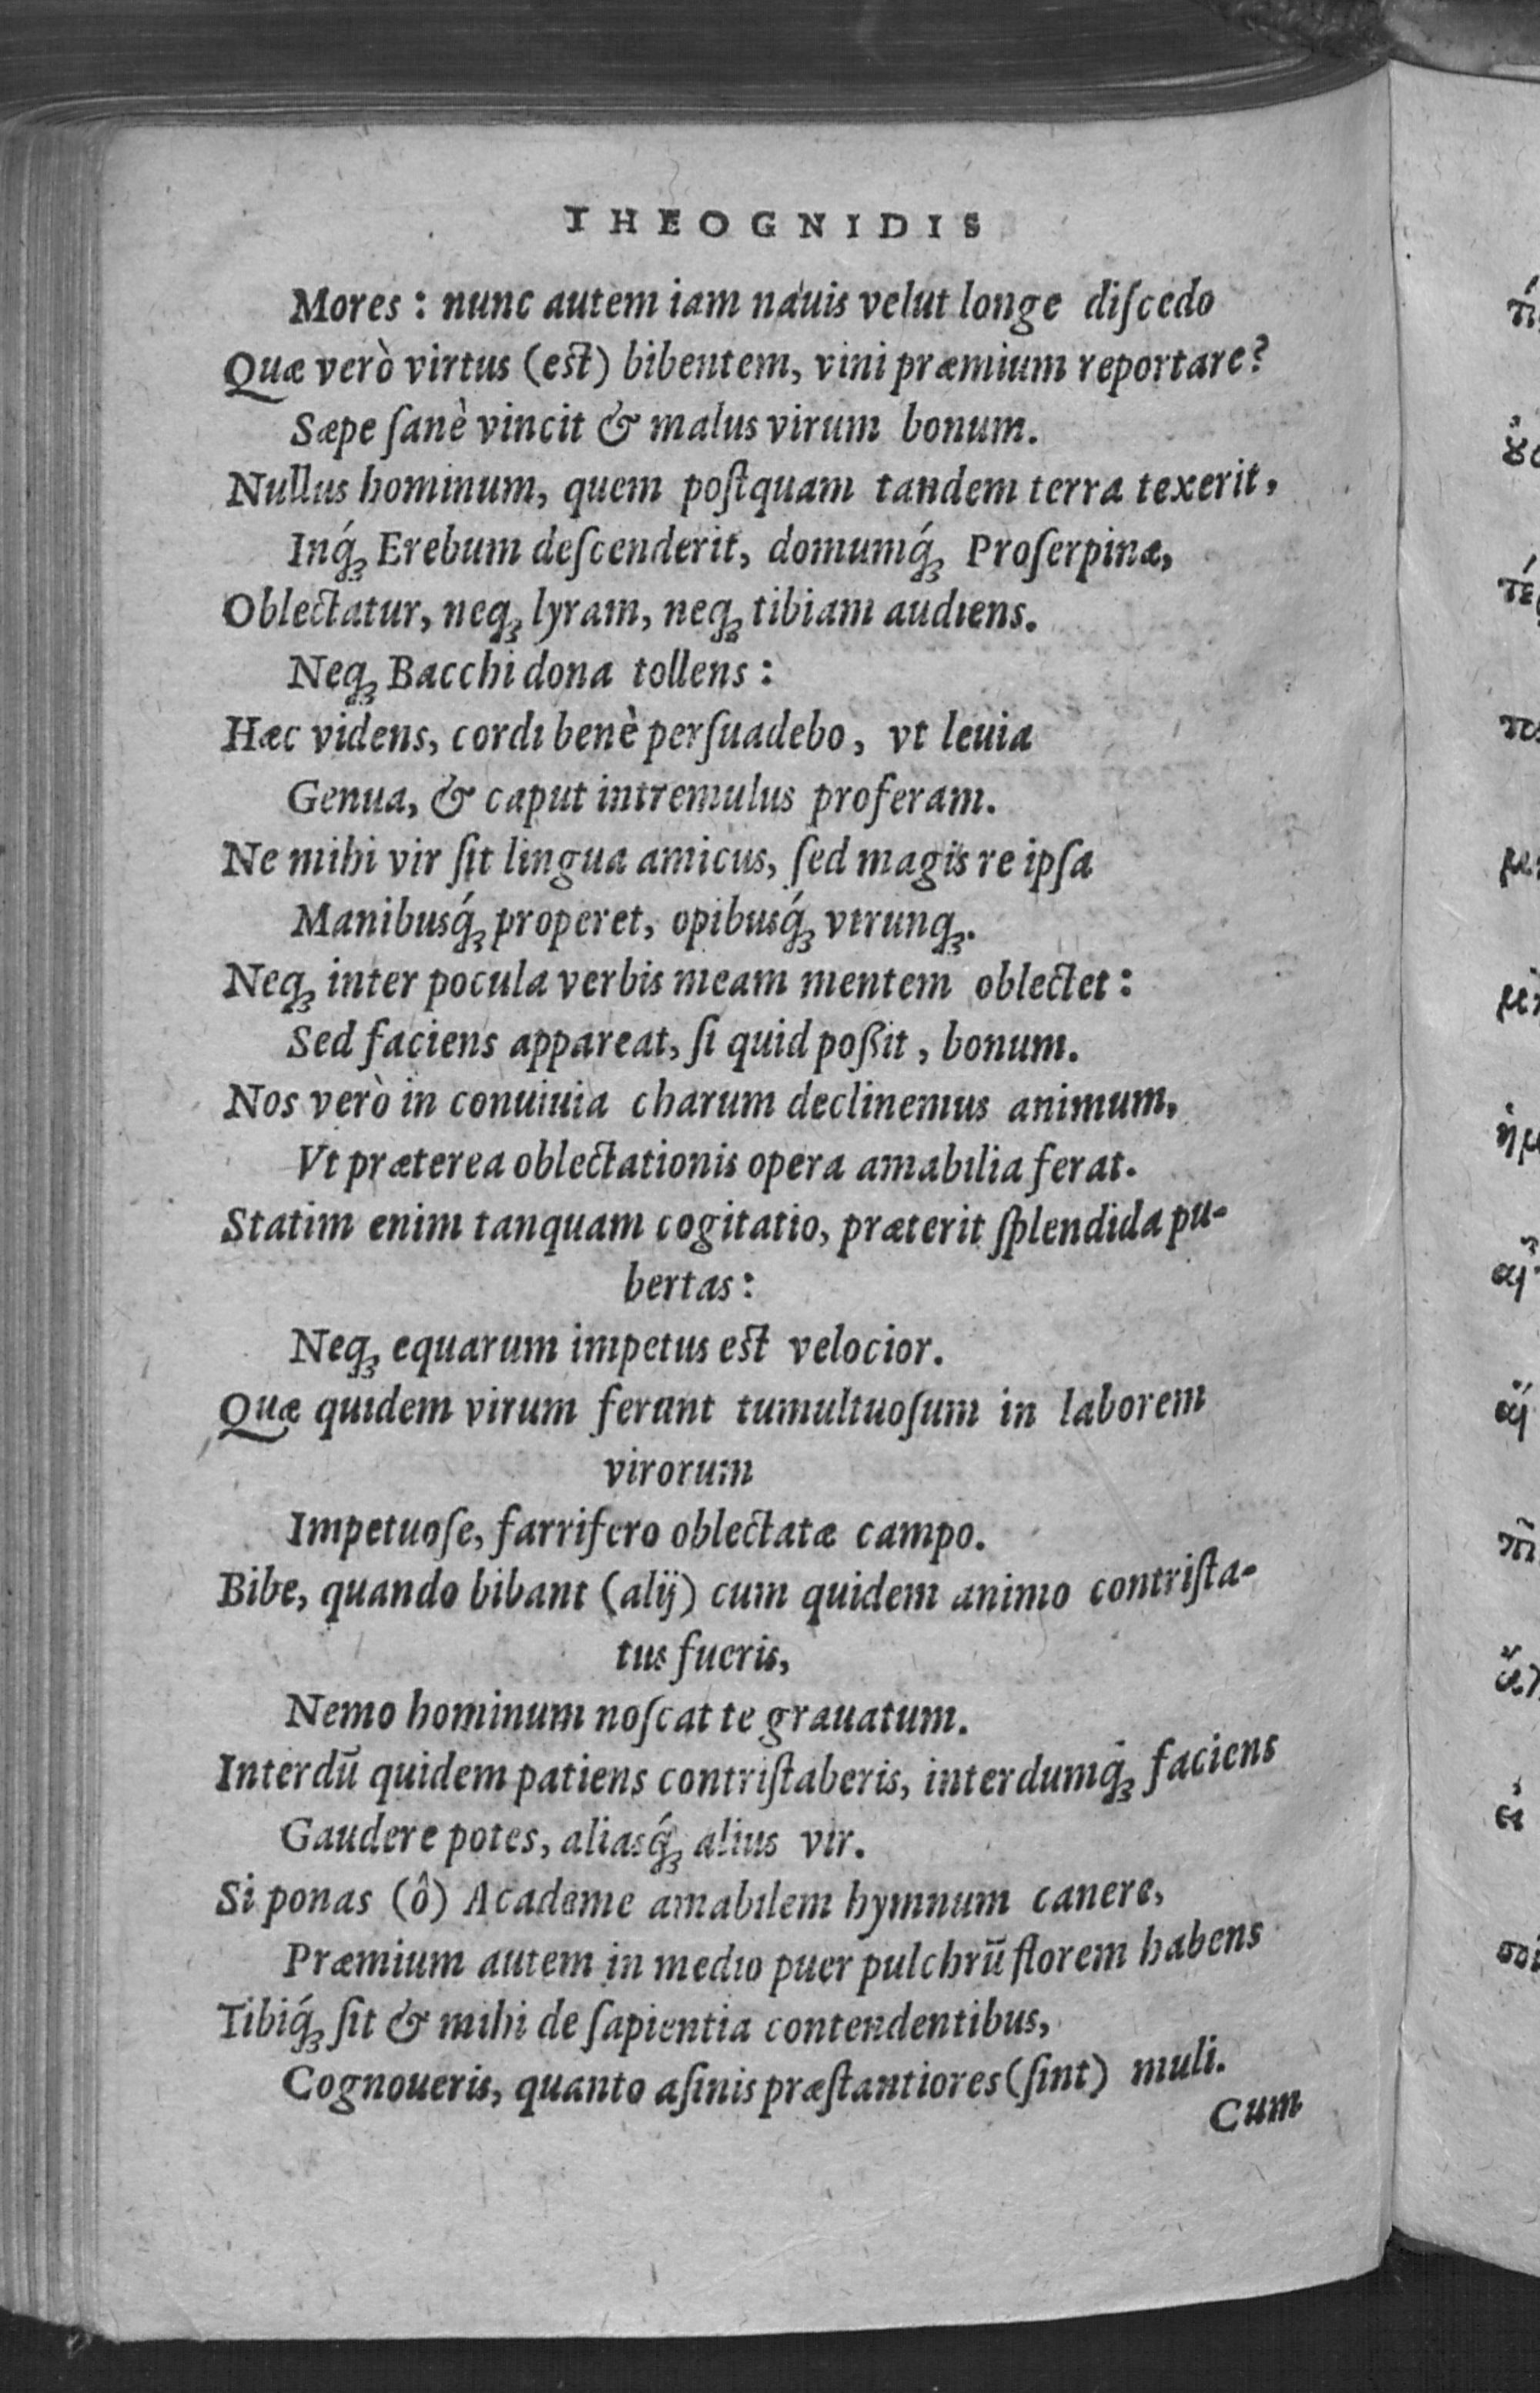 THEOGNIDIS
Mores : nunc autem iam nauis velut longe diſcedo
Quæ verò virtus (est) bibentem, vini præmium reportare?
Sæpe ſanè vincit & malus virum bonum.
Nullus hominum, quem poſtquam tandem terra texerit,
Inq́ꝫ Erebum deſcenderit, domumq́ꝫ Proſerpinæ,
Oblectatur, neqꝫ lyram, neqꝫ tibiam audiens.
Neqꝫ Bacchi dona tollens :
Hæc videns, cordi benè perſuadebo, vt leuia
Genua, & caput intremulus proferam.
Ne mihi vir ſit lingua amicus, ſed magis re ipſa
Manibusq́ꝫ properet, opibusq́ꝫ vtrunqꝫ.
Neqꝫ inter pocula verbis meam mentem oblectet :
Sed faciens appareat, ſi quid poßit, bonum.
Nos verò in conuiuia charum declinemus animum,
Vt præterea oblectationis opera amabilia ferat.
Statim enim tanquam cogitatio, præterit ſplendida pu-
bertas :
Neqꝫ equarum impetus est velocior.
Quæ quidem virum ferunt tumultuoſum in laborem
virorum
Impetuoſe, farrifero oblectatæ campo.
Bibe, quando bibant (alij) cum quidem animo contriſta-
tus fueris,
Nemo hominum noſcat te grauatum.
Interdū quidem patiens contriſtaberis, interdumq́ꝫ faciens
Gaudere potes, aliasq́ꝫ alius vir.
Si ponas (ô) Academe amabilem hymnum canere,
Præmium autem in medio puer pulchrū florem habens
Tibiq́ꝫ ſit & mihi de ſapientia contendentibus,
Cognoueris, quanto aſinis præſtantiores (ſint) muli.
Cum